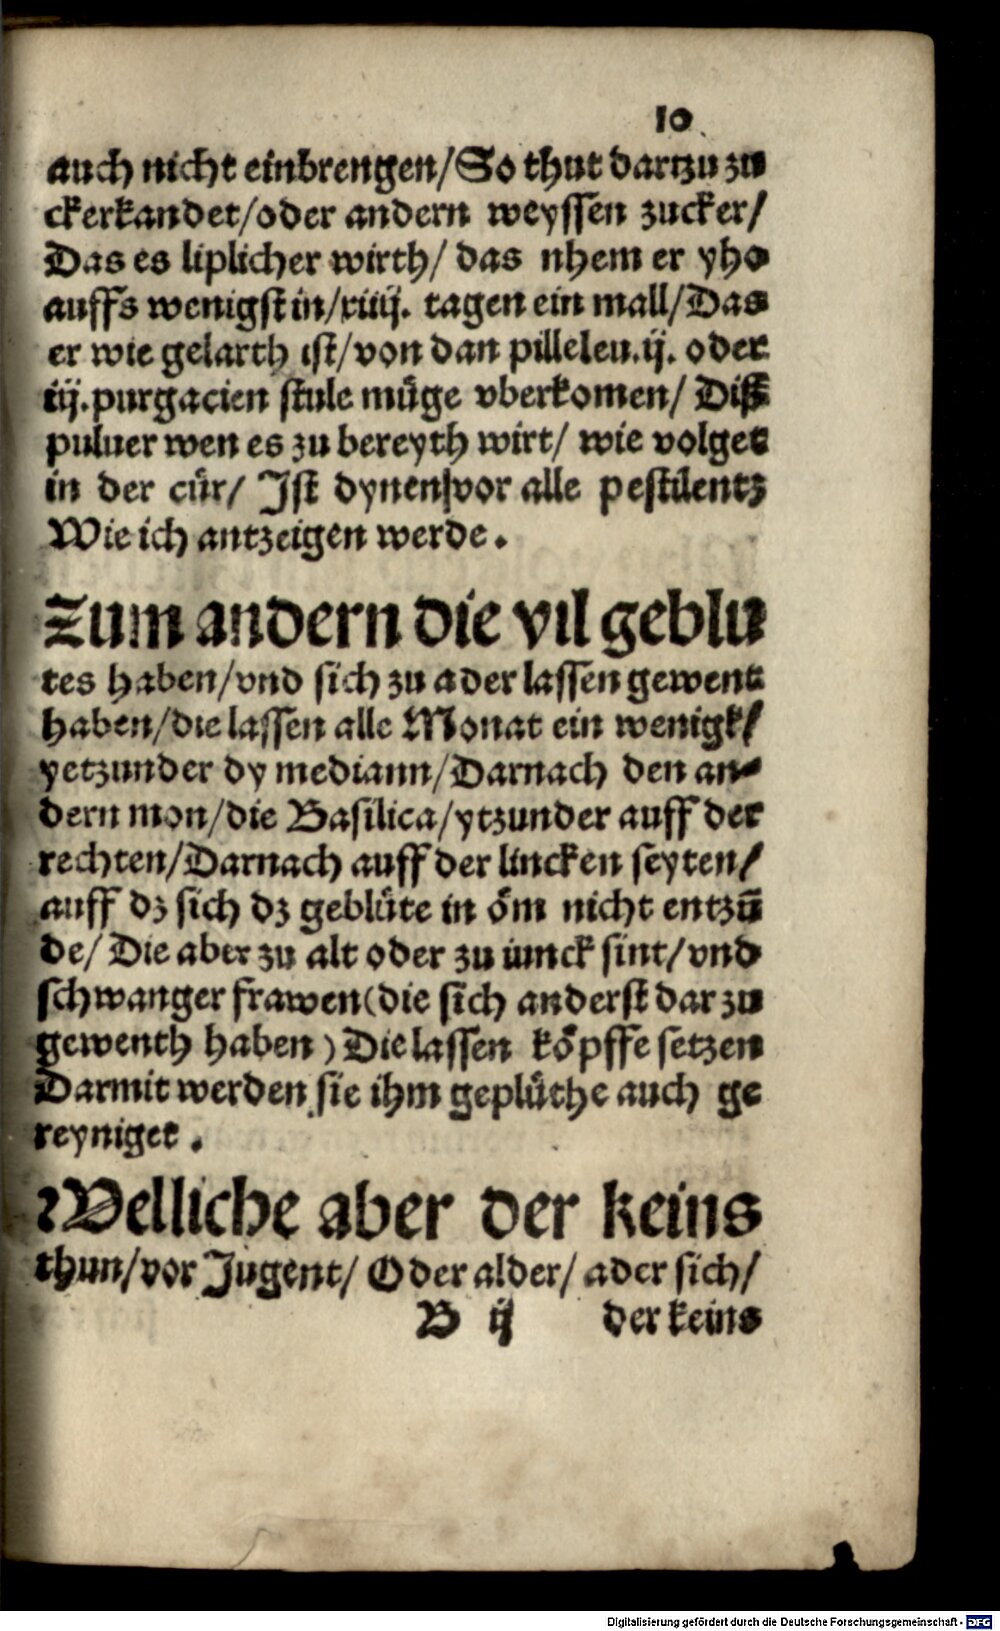 10
auch nicht einbrengen/So thut dartzu zu
ckerkandet/oder andern weyssen zucker/
Das es liplicher wirth/ das nhem er yho
auffs wenigst in/xiiij. tagen ein mall/Das
er wie gelarth ist/von dan pillelen.ij. oder
iij.purgacien stule müge vberkomen/ Diß
puluer wen es zu bereyth wirt/ wie volget
in der cür/ Jst dynen/vor alle pestilentz
Wie ich antzeigen werde.
Zum andern die vil geblu
tes haben/vnd sich zu ader lassen gewent
haben/die lassen alle Monat ein wenigk/
yetzunder dy mediann/Darnach den an-
dern mon/die Basilica/ytzunder auff der
rechten/Darnach auff der lincken seyten/
auff dz sich dz geblüte in öm nicht entzū
de/ Die aber zu alt oder zu iunck sint/vnd
schwanger frawen(die sich anderst dar zu
gewenth haben) Die lassen köpffe setzen
Darmit werden sie ihm geplüthe auch ge
reyniget.
Welliche aber der keins
thun/vor Jugent/ Oder alder/ ader sich/
B ij der keins
Digitalisierung gefördert durch die Deutsche Forschungsgemeinschaft - DFG